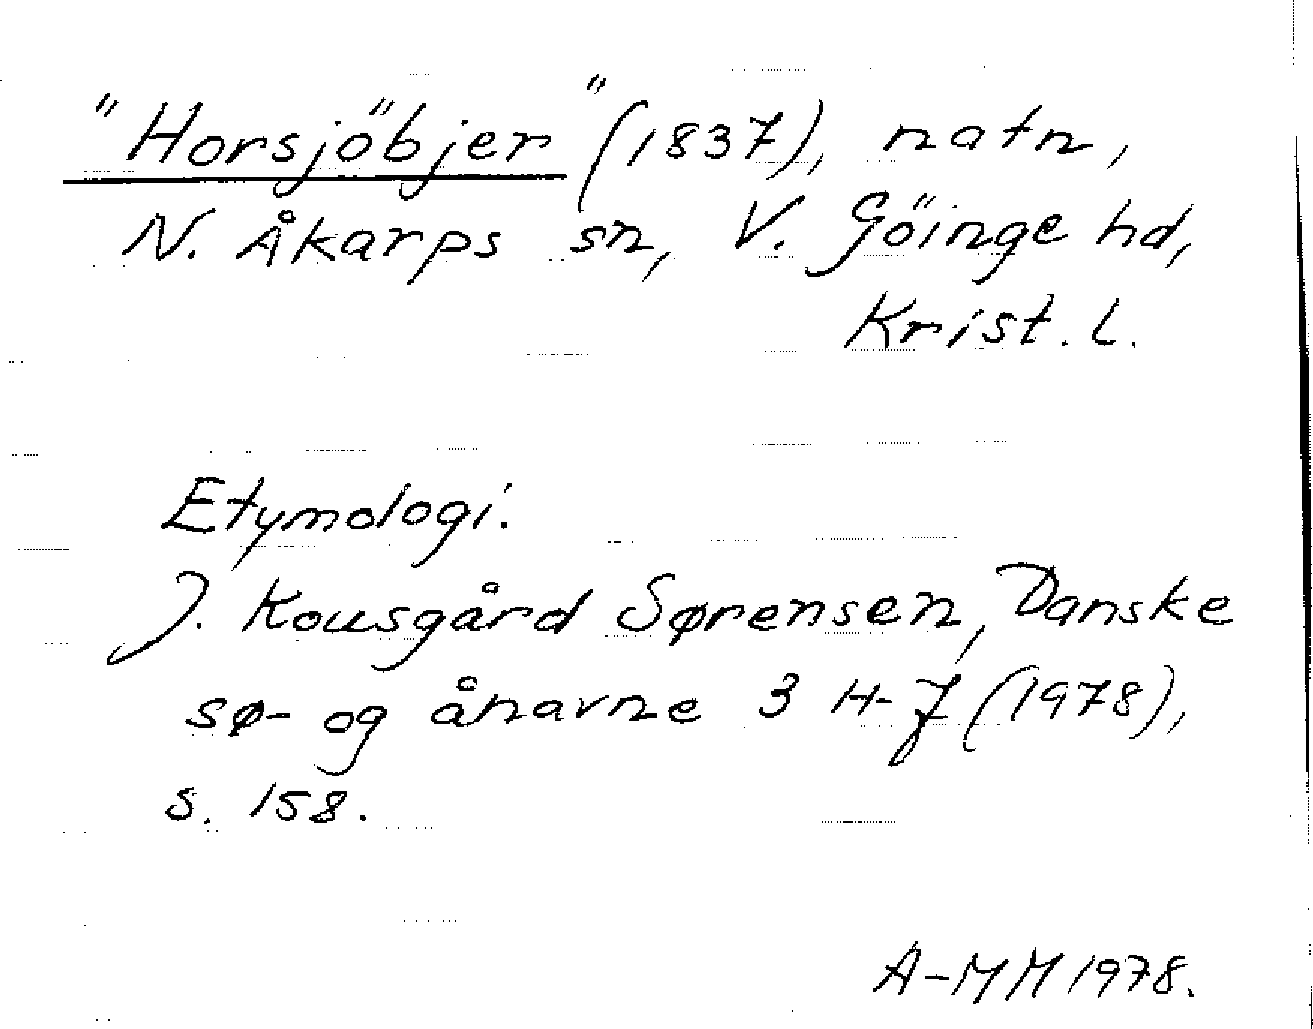 "Horsjöbjer" (1837), natn,
N. Åkarps sn, V. Göinge hd,
Krist. l.
Etymologi.
J. Kousgård Sørensen, Danske
sø- og ånavne 3 H-J (1978),
s. 158.
A-MM 1978.